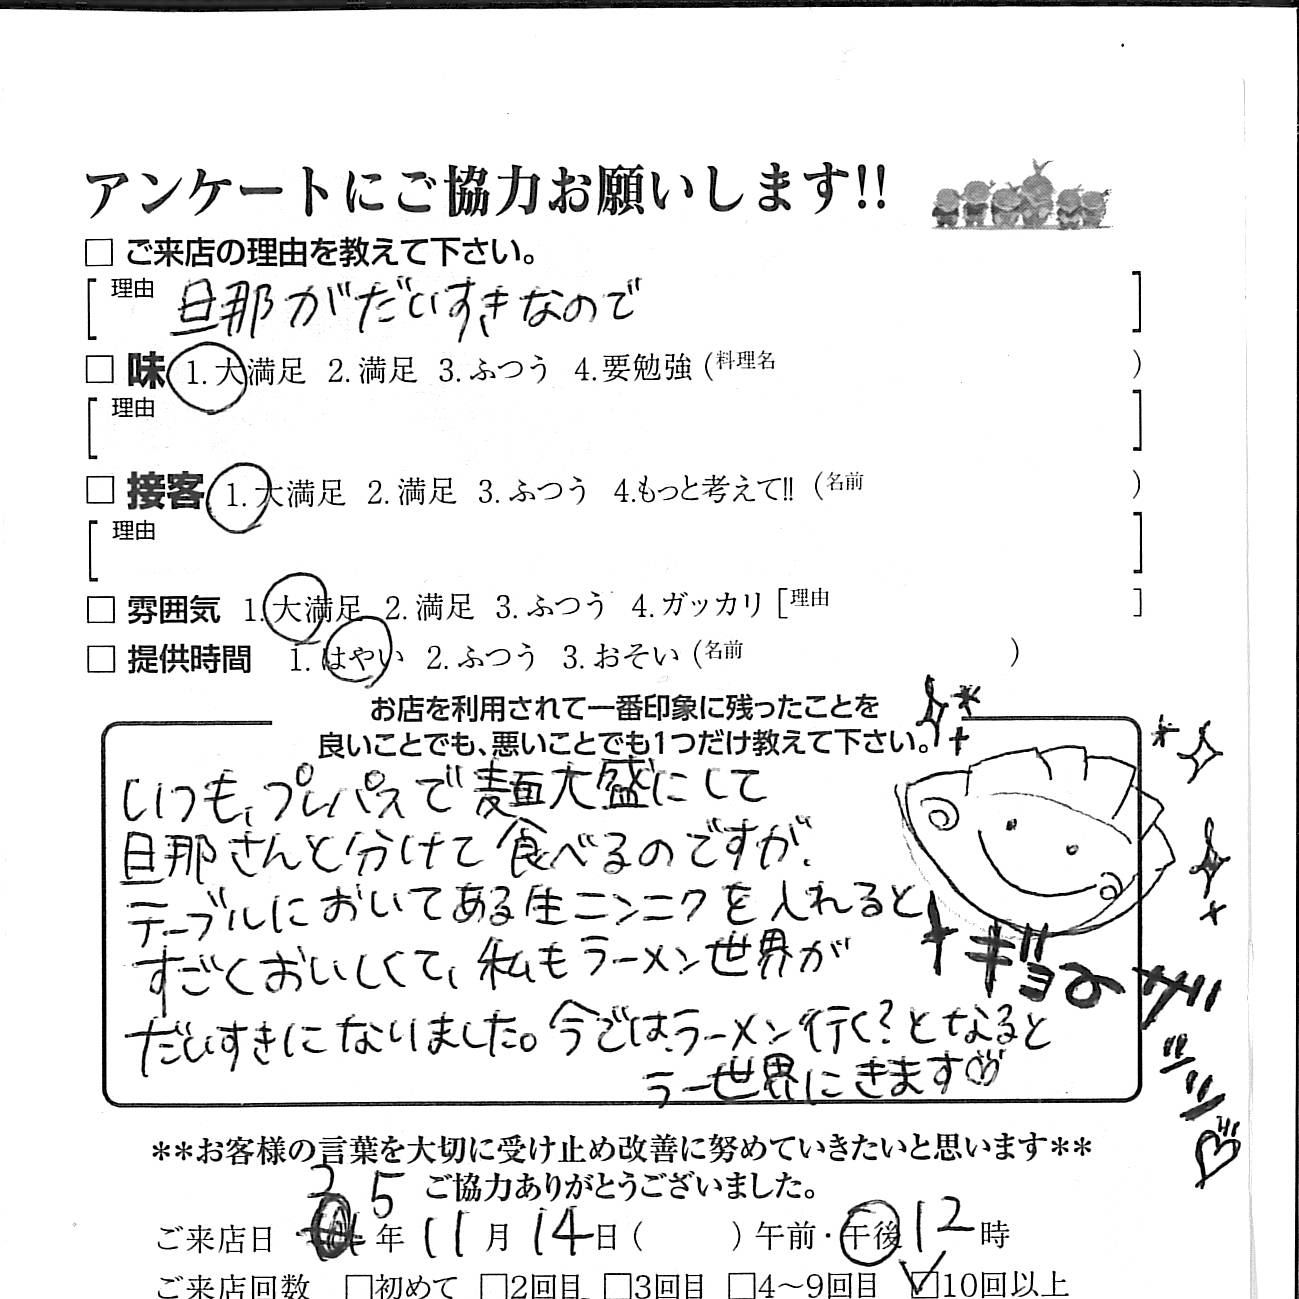 アンケートにご協力お願いします!!
□ ご来店の理由を教えて下さい。
[理由 旦那がだいすきなので]
□ 味 1.大満足 2.満足 3.ふつう 4.要勉強 (料理名 )
[理由 ]
□ 接客 1.大満足 2.満足 3.ふつう 4.もっと考えて!! (名前 )
[理由 ]
□ 雰囲気 1.大満足 2.満足 3.ふつう 4.ガッカリ [理由 ]
□ 提供時間 1.はやい 2.ふつう 3.おそい (名前 )
お店を利用されて一番印象に残ったことを
良いことでも、悪いことでも1つだけ教えて下さい。
いつも、プレパスで麺大盛にして
旦那さんと分けて食べるのですが、
テーブルにおいてある生ニンニクを入れると
すごくおいしくて、私もラーメン世界が
だいすきになりました。今では、ラーメン行く?となると
ラー世界にきます♡
ギョーザ
**お客様の言葉を大切に受け止め改善に努めていきたいと思います**
ご協力ありがとうございました。
ご来店日 25年11月14日( )午前・午後12時
ご来店回数 □初めて □2回目 □3回目 □4〜9回目 ☑10回以上